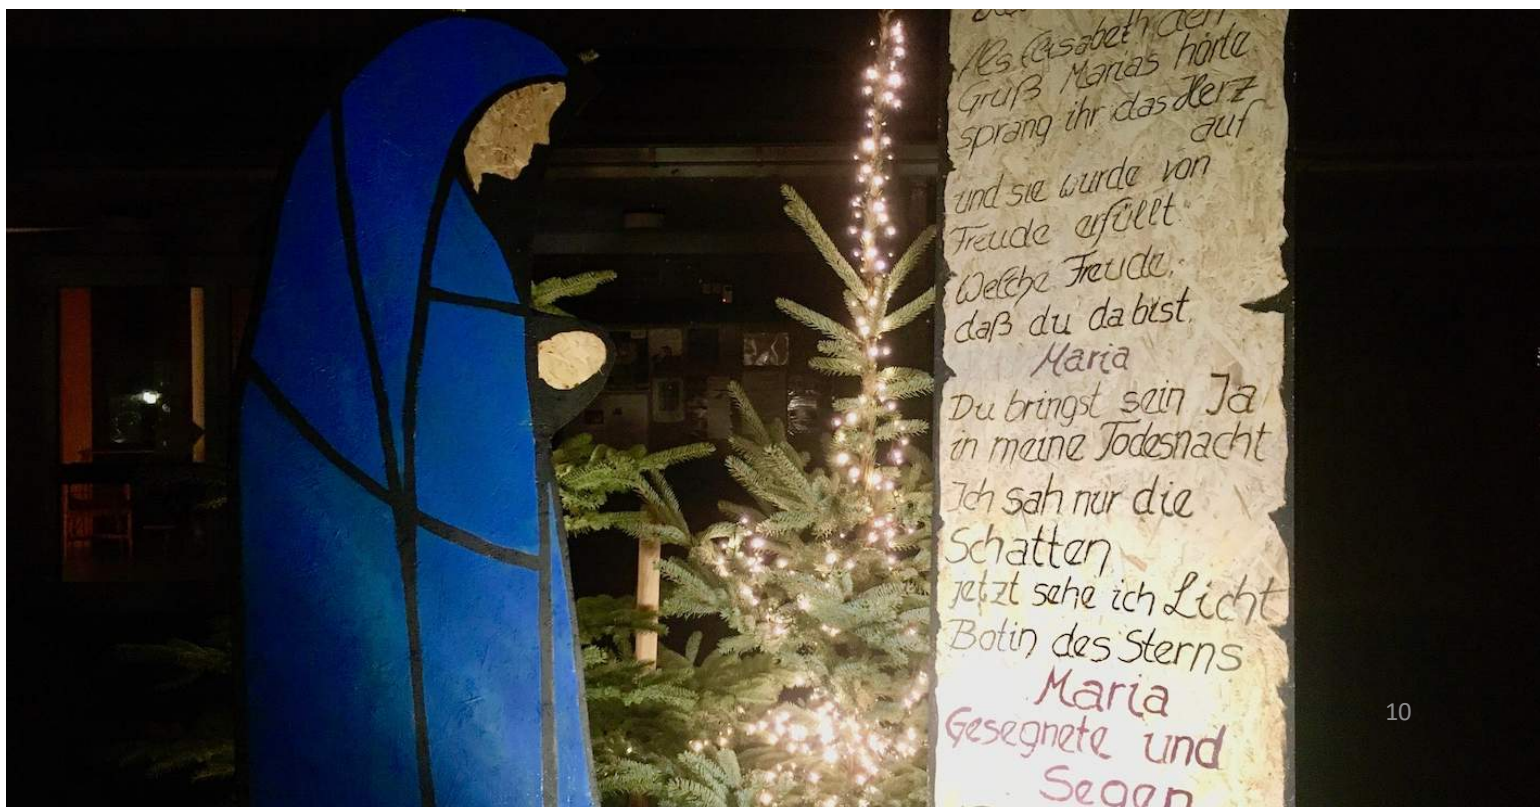 Als Elisabeth den
Gruß Marias hörte
sprang ihr das Herz
auf
und sie wurde von
Freude erfüllt
Welche Freude,
daß du da bist.
Maria
Du bringst sein Ja
in meine Todesnacht
Ich sah nur die
Schatten
jetzt sehe ich Licht
Botin des Sterns
Maria
Gesegnete und
Segen
10